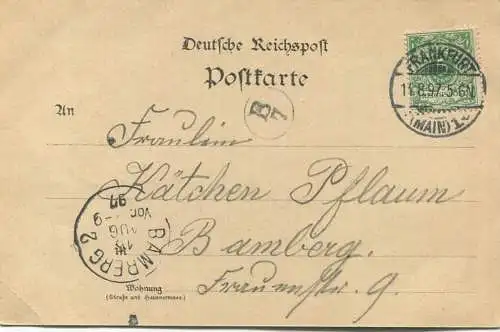 Deutsche Reichspost
Postkarte
FRANKFURT
11.8.97.5-6N
(MAIN) 1
B
7
An
Fräulein
Kätchen Pflaum
Bamberg.
Frauenstr. 9.
BAMBERG 2
AUG
Vor. -9
97
Wohnung
(Straße und Hausnummer)